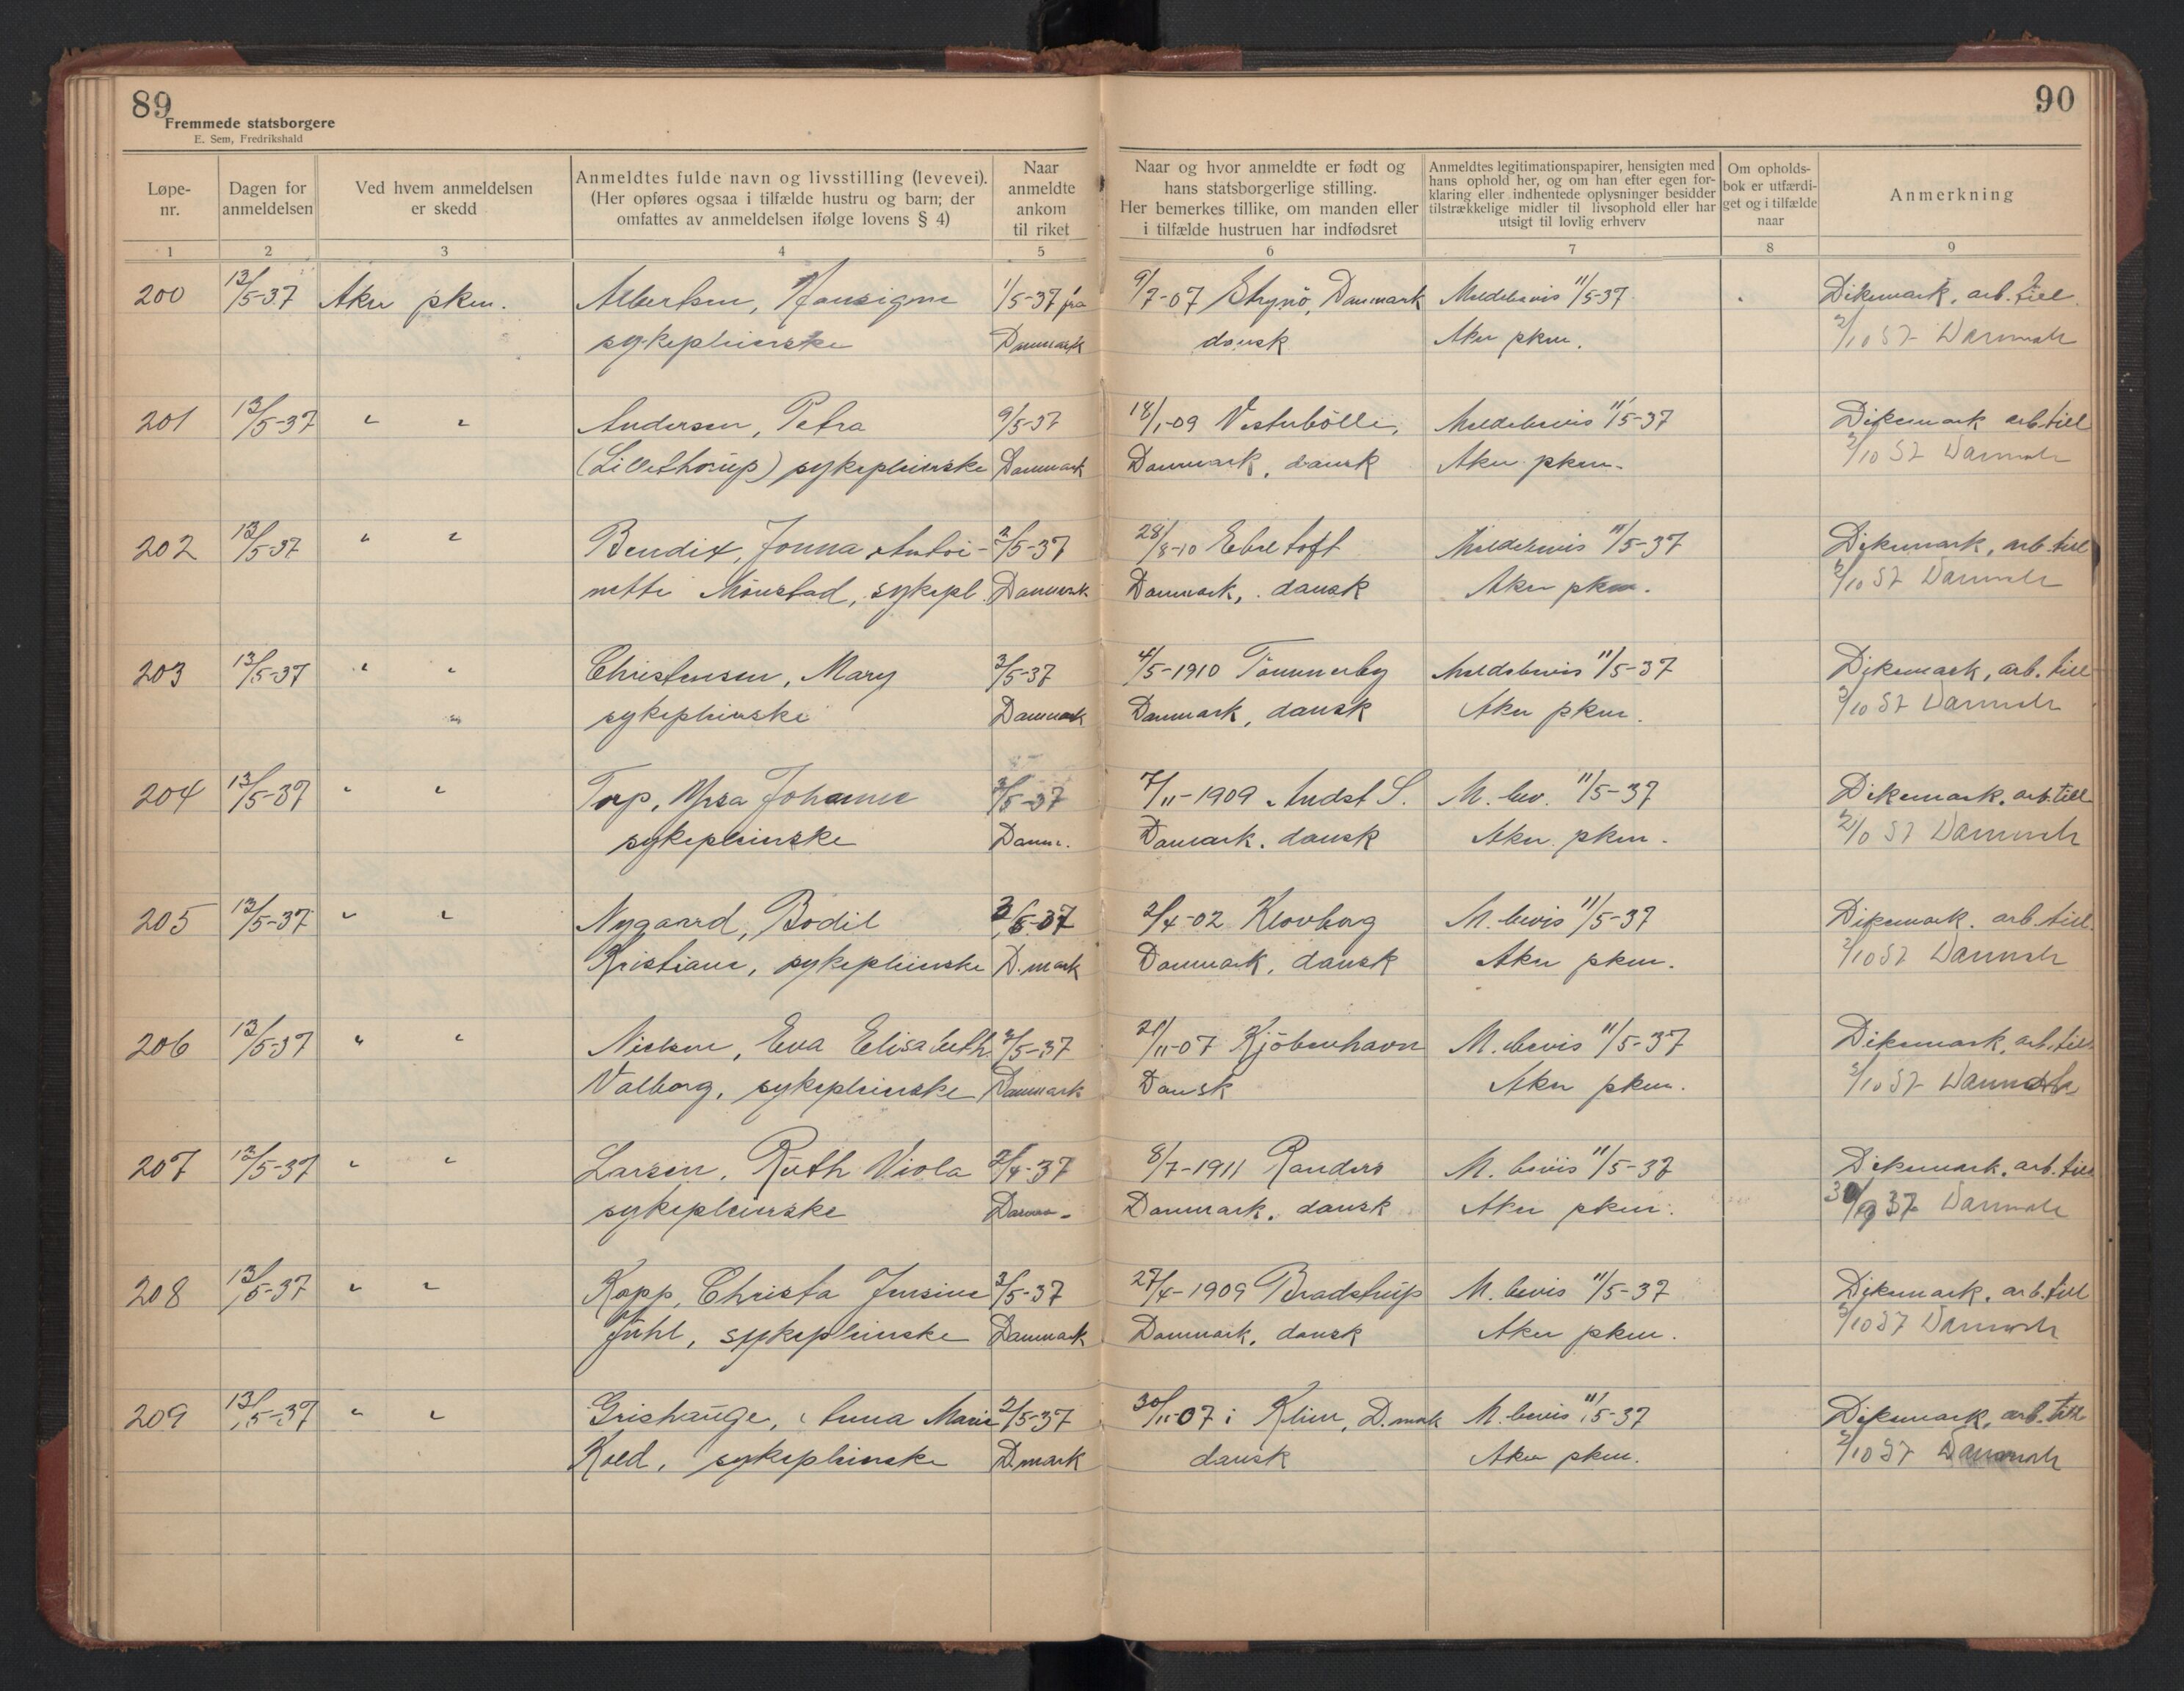 89
Fremmede statsborgere
E. Sem, Fredrikshald
90
Løpe-nr.
Dagen for anmeldelsen
Ved hvem anmeldelsen er skedd
Anmeldtes fulde navn og livsstilling (levevei).
(Her opføres ogsaa i tilfælde hustru og barn; der
omfattes av anmeldelsen ifølge lovens § 4)
Naar anmeldte ankom til riket
Naar og hvor anmeldte er født og
hans statsborgerlige stilling.
Her bemerkes tillike, om manden eller
i tilfælde hustruen har indfødsret
Anmeldtes legitimationspapirer, hensigten med
hans ophold her, og om han efter egen for-
klaring eller indhentede oplysninger besidder
tilstrækkelige midler til livsophold eller har
utsigt til lovlig erhverv
Om opholds-
bok er utfærdi-
get og i tilfælde
naar
Anmerkning
1 2 3 4 5 6 7 8 9
200 13/5-37 Aker pkm. Albertsen, 1/5-37 fra 9/7-07 Strynö, Danmark Meldebevis 11/5-37 Dikemark, arb. till.
sykepleierske Danmark dansk Aker pkm. 2/10 37 Danmark
201 13/5-37 " " Andersen, Petra 9/5-37 18/1-09 Vesterbölle, Meldebevis 11/5-37 Dikemark arb. till
(Lillethorup) sykepleierske Danmark Danmark, dansk Aker pkm. 2/10 37 Danmark
202 13/5-37 " " Bendix, Jonna Antoi- 2/5-37 28/8-10 Ebeltoft Meldebevis 11/5-37 Dikemark, arb. till
nette Mönstad, sykepl. Danmark Danmark, dansk Aker pkm. 2/10 37 Danmark
203 13/5-37 " " Christensen, Mary 3/5-37 4/5-1910 Tömmerby Meldebevis 11/5-37 Dikemark, arb. till
sykepleierske Danmark Danmark, dansk Aker pkm. 2/10 37 Danmark
204 13/5-37 " " Torp, Johanne 3/5-37 7/11-1909 Andst S. M. bev. 11/5-37 Dikemark, arb. till
sykepleierske Danm. Danmark. dansk Aker pkm. 37 Danmark
205 13/5-37 " " Nygaard, Bodil 37 2/4-02 Klovborg M. bevis 11/5-37 Dikemark. arb. till.
Kristiane, sykepleierske D.mark Danmark, dansk Aker pkm. 2/10 37 Danmark
206 13/5-37 " " Nielsen, Eva Elisabeth 2/5-37 21/11-07 Kjöbenhavn M. bevis 11/5-37 Dikemark, arb. till
Valborg, sykepleierske Danmark Dansk Aker pkm. 2/10 37 Danmark
207 13/5-37 " " Larsen, Ruth Viola 2/4-37 8/7-1911 Randers M. bevis 11/5-37 Dikemark, arb. till
sykepleierske Danmark, dansk Aker pkm. 37 Danmark
208 13/5-37 " " Kopp, Christa Jensine 3/5-37 27/4-1909 Bradstrup M. bevis 11/5-37 Dikemark, arb. till
Juhl, sykepleierske Danmark Danmark, dansk Aker pkm. 2/10 37 Danmark
209 13/5-37 " " Grishauge, Anna Marie 2/5-37 30/11-07 i Klim, D.mark M. bevis 11/5-37 Dikemark, arb. till
Kold, sykepleierske D.mark dansk Aker pkm. 2/10 37 Danmark